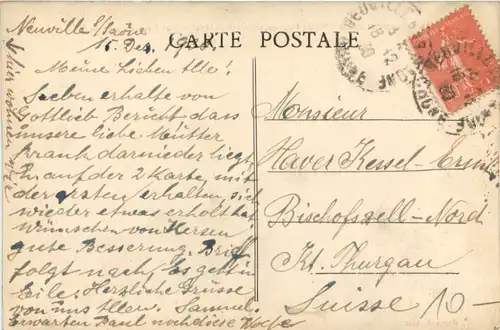 Neuville s/Saône
15. Dez. 19
CARTE POSTALE
Meine Lieben Alle!
Soeben erhalte von
Gottlieb Bericht dass
unsere liebe Mutter
krank darnieder liegt,
auf der 2 Karte, mit
der ersten erhalten, sich
wieder etwas erholt hat
wünschen von Herzen
gute Besserung. Brief
folgt nach, Es geht in
Eile. Herzliche Grüsse
von uns allen. Samuel.
erwarten Paul noch diese Woche
Monsieur
Xaver Kessel-
Bischofszell-Nord
Kt. Thurgau
Suisse
10-